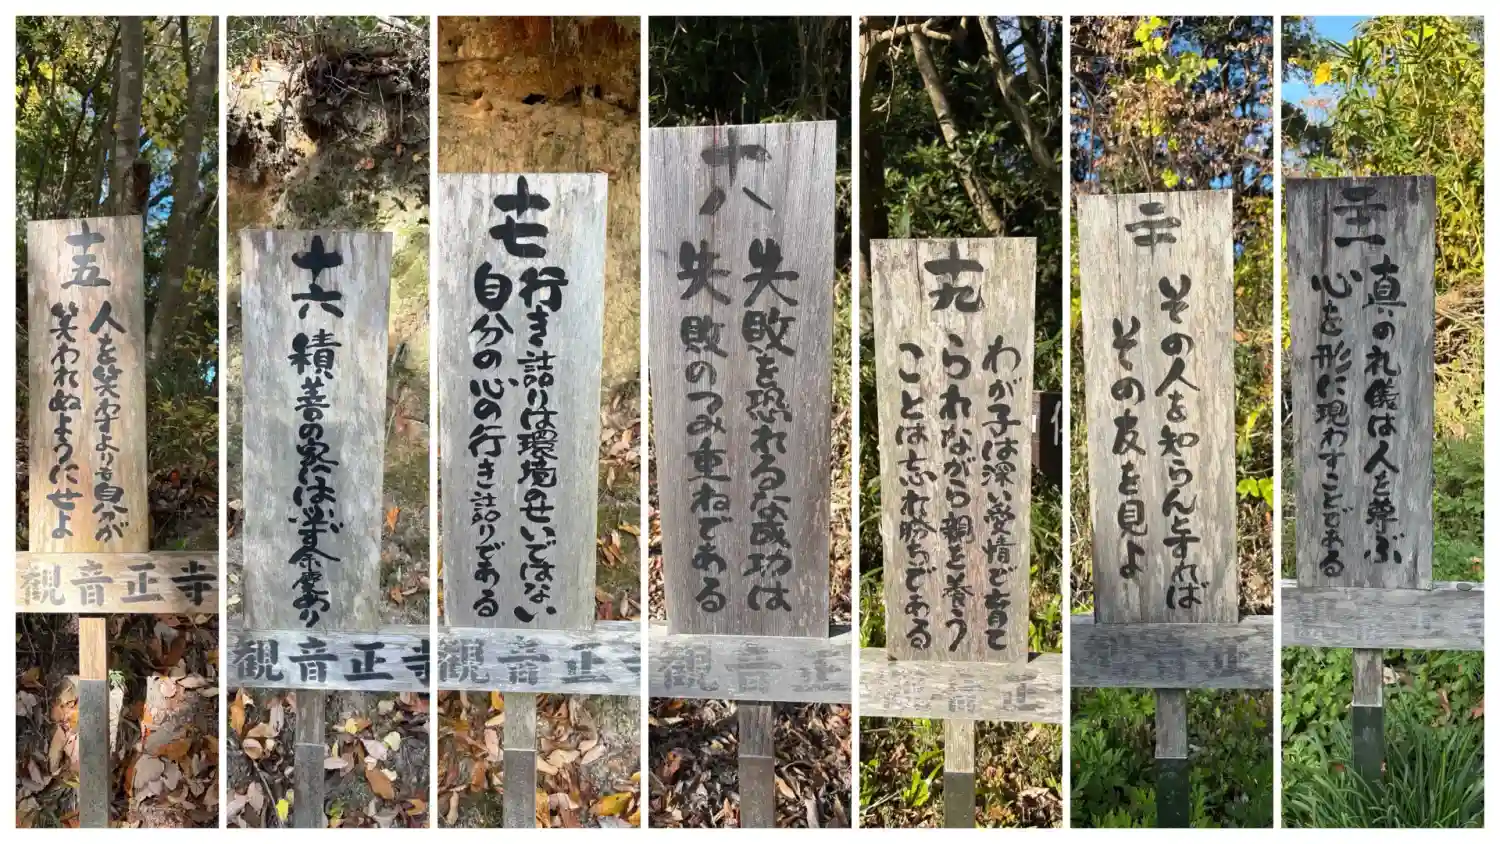 十五
人を笑わすよりも自分が
笑われぬようにせよ
観音正寺
十六
積善の家には必ず余慶あり
観音正寺
十七
行き詰りは環境のせいではない
自分の心の行き詰りである
観音正寺
十八
失敗を恐れるな成功は
失敗のつみ重ねである
観音正
十九
わが子は深い愛情で育て
られながら親を養う
ことは忘れ勝ちである
音正
二十
その人を知らんと手れば
その友を見よ
音正
二十一
真の礼儀は人を尊ぶ
心を形に現わすことである